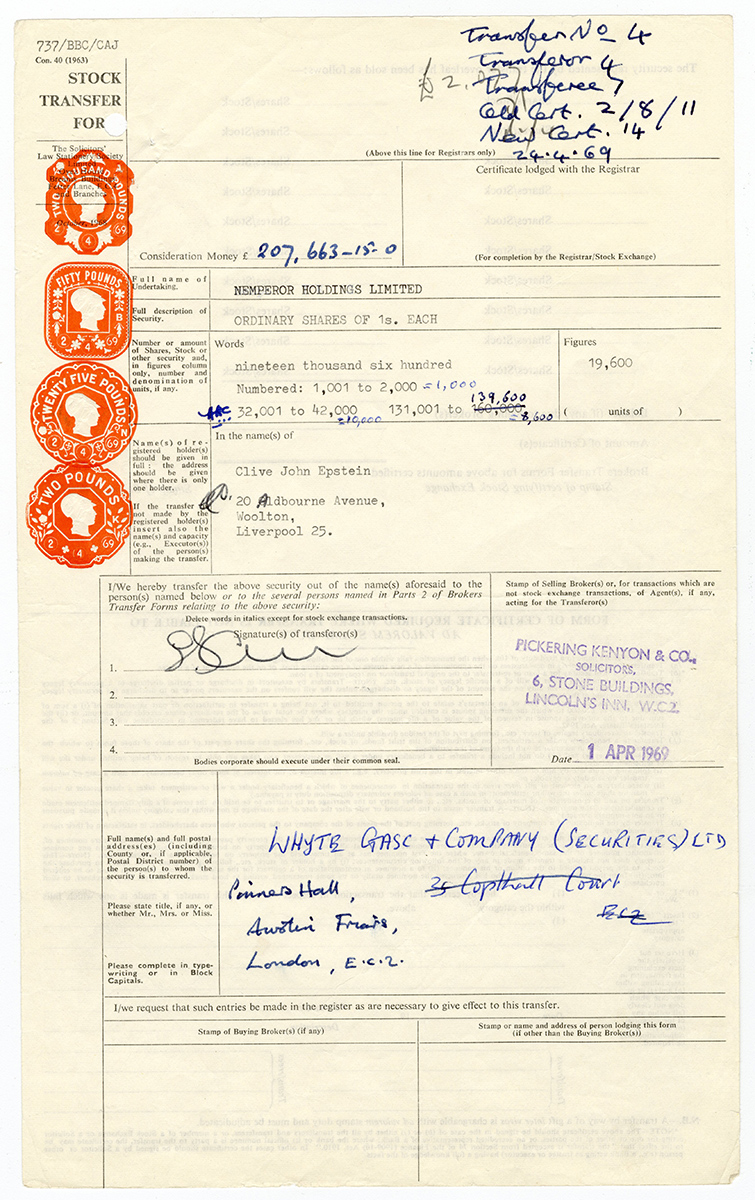 737/BBC/CAJ
Con. 40 (1963)
STOCK
TRANSFER
FOR
The Solicitors'
Law Stationery Society
Transfer No 4
Transferor 4
Transferee 7
Old Cert. 2/8/11
New Cert. 14
(Above this line for Registrars only)
24.4.69
TWO THOUSAND POUNDS
2 4 69
Certificate lodged with the Registrar
Consideration Money £ 207,663-15-0
(For completion by the Registrar/Stock Exchange)
FIFTY POUNDS
B
2 4 69
Full name of
Undertaking.
NEMPEROR HOLDINGS LIMITED
Full description of
Security.
ORDINARY SHARES OF 1s. EACH
Number or amount
of Shares, Stock or
other security and,
in figures column
only, number and
denomination of
units, if any.
Words
nineteen thousand six hundred
Numbered: 1,001 to 2,000 = 1,000
139,600
32,001 to 42,000 131,001 to 160,000
=10,000 = 8,600
Figures
19,600
( units of )
TWENTY FIVE POUNDS
2 4 69
Name(s) of re-
gistered holder(s)
should be given in
full : the address
should be given
where there is only
one holder.
If the transfer is
not made by the
registered holder(s)
insert also the
name(s) and capacity
(e.g., Executor(s))
of the person(s)
making the transfer.
In the name(s) of
Clive John Epstein
20 Aldbourne Avenue,
Woolton,
Liverpool 25.
TWO POUNDS
2 4 69
I/We hereby transfer the above security out of the name(s) aforesaid to the
person(s) named below or to the several persons named in Parts 2 of Brokers
Transfer Forms relating to the above security:
Delete words in italics except for stock exchange transactions.
Signature(s) of transferor(s)
1.
2.
3.
4.
Bodies corporate should execute under their common seal.
Stamp of Selling Broker(s) or, for transactions which are
not stock exchange transactions, of Agent(s), if any,
acting for the Transferor(s)
PICKERING KENYON & CO.,
SOLICITORS,
6, STONE BUILDINGS,
LINCOLN'S INN, W.C.2.
Date 1 APR 1969
Full name(s) and full postal
address(es) (including
County or, if applicable,
Postal District number) of
the person(s) to whom the
security is transferred.
Please state title, if any, or
whether Mr., Mrs. or Miss.
Please complete in type-
writing or in Block
Capitals.
WHYTE GASC & COMPANY (SECURITIES) LTD
Pinners Hall, 35 Copthall Court
Austin Friars, EC2
London, E.C.2.
I/we request that such entries be made in the register as are necessary to give effect to this transfer.
Stamp of Buying Broker(s) (if any)
Stamp or name and address of person lodging this form
(if other than the Buying Broker(s))